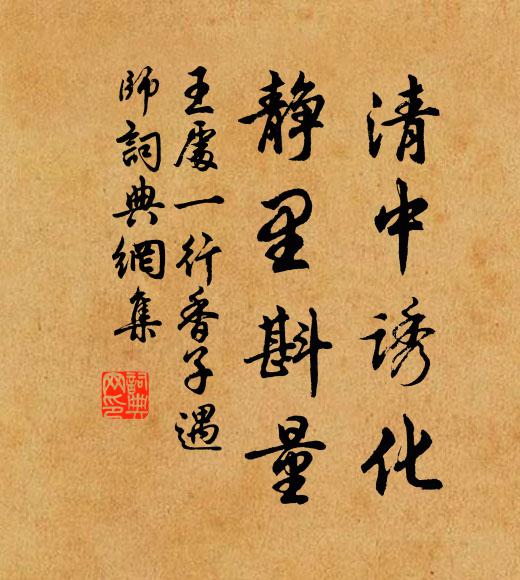 清中誘化
静里斟量
王處一行香子遇
師詞典網集
詞典
网印